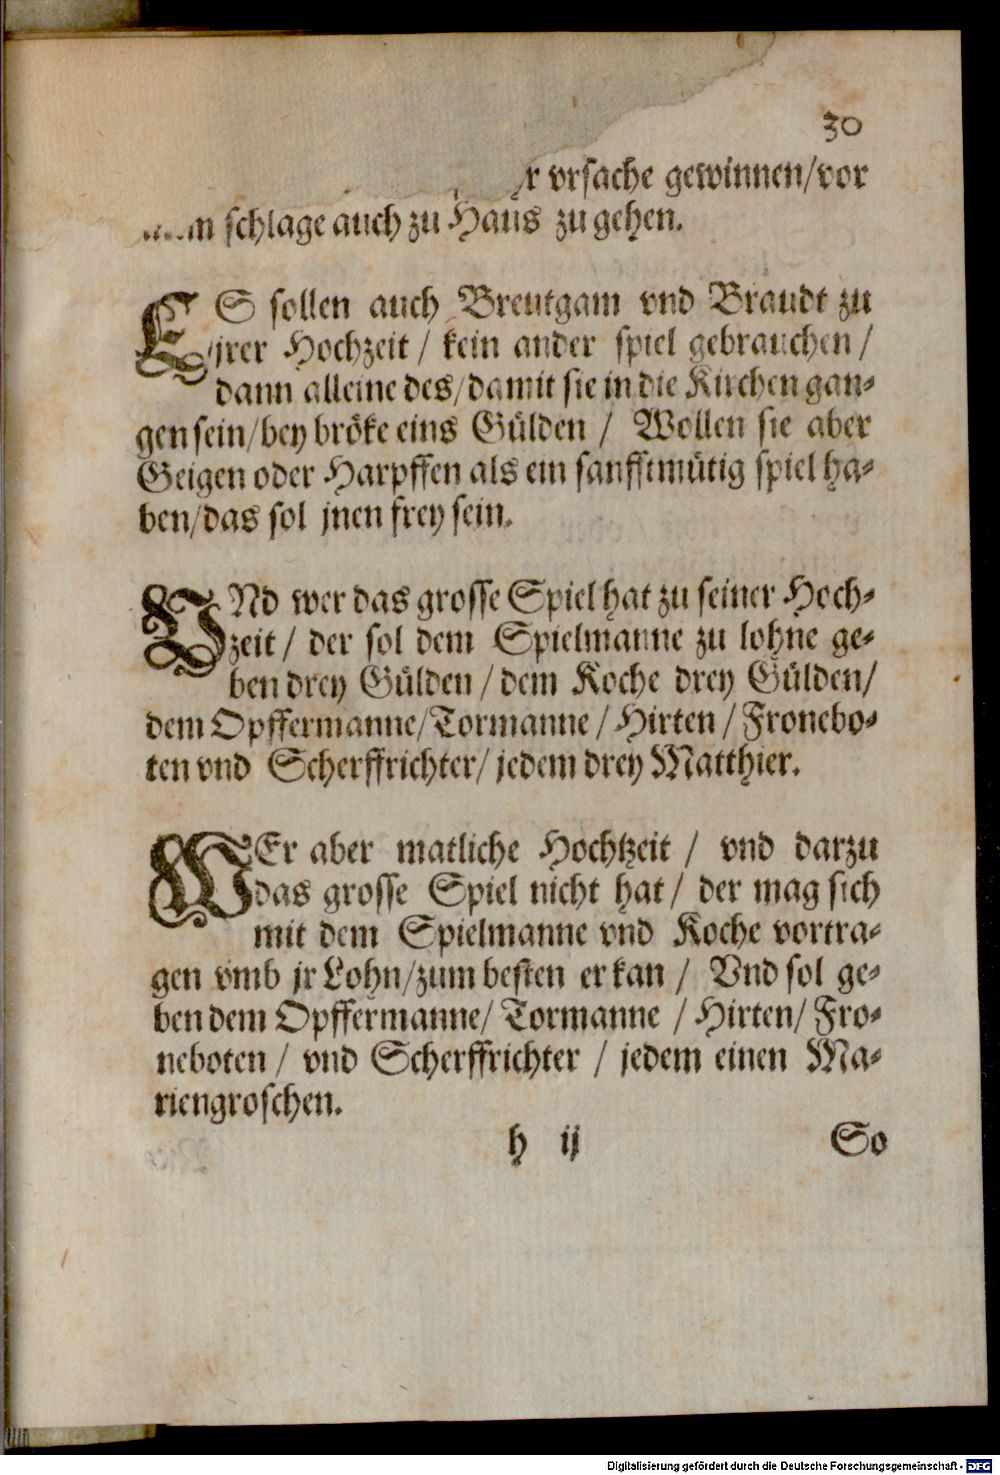 30
vrsache gewinnen/vor
schlage auch zu Haus zu gehen.
ES sollen auch Breutgam vnd Braudt zu
jrer Hochzeit / kein ander spiel gebrauchen /
dann alleine des/damit sie in die Kirchen gan-
gen sein/bey bröke eins Gülden / Wollen sie aber
Geigen oder Harpffen als ein sanfftmütig spiel ha-
ben/das sol jnen frey sein.
VNd wer das grosse Spiel hat zu seiner Hoch-
zeit / der sol dem Spielmanne zu lohne ge-
ben drey Gülden / dem Koche drey Gülden/
dem Opffermanne/Tormanne / Hirten / Fronebo-
ten vnd Scherffrichter/ jedem drey Matthier.
WEr aber matliche Hochtzeit / vnd darzu
das grosse Spiel nicht hat / der mag sich
mit dem Spielmanne vnd Koche vortra-
gen vmb jr Lohn/zum besten er kan / Vnd sol ge-
ben dem Opffermanne/ Tormanne / Hirten/ Fro-
neboten / vnd Scherffrichter / jedem einen Ma-
riengroschen.
h ij So
Digitalisierung gefördert durch die Deutsche Forschungsgemeinschaft - DFG